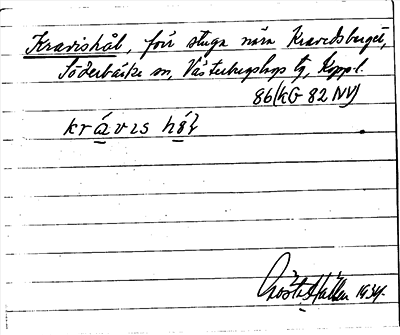 Kravishål, förr stuga nära Kravedsberget,
Söderbärke sn, Västerbergslags tg, Koppl.
86 (KG 82 NV)
krávis hól
Gösta 1934.